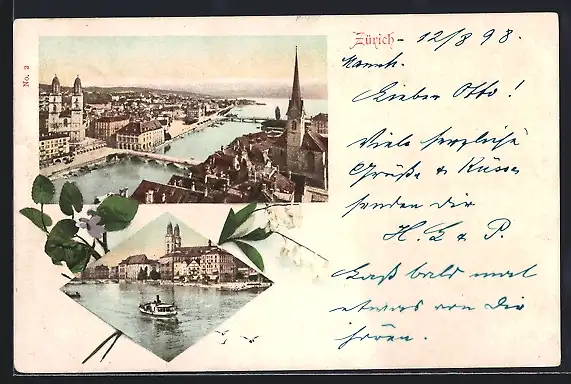 No. 2
Zürich - 12/8 98.
Lieber Otto!
Viele herzliche
Grüße & Küsse
senden dir
H. L & P.
Laß bald mal
etwas von dir
hören.